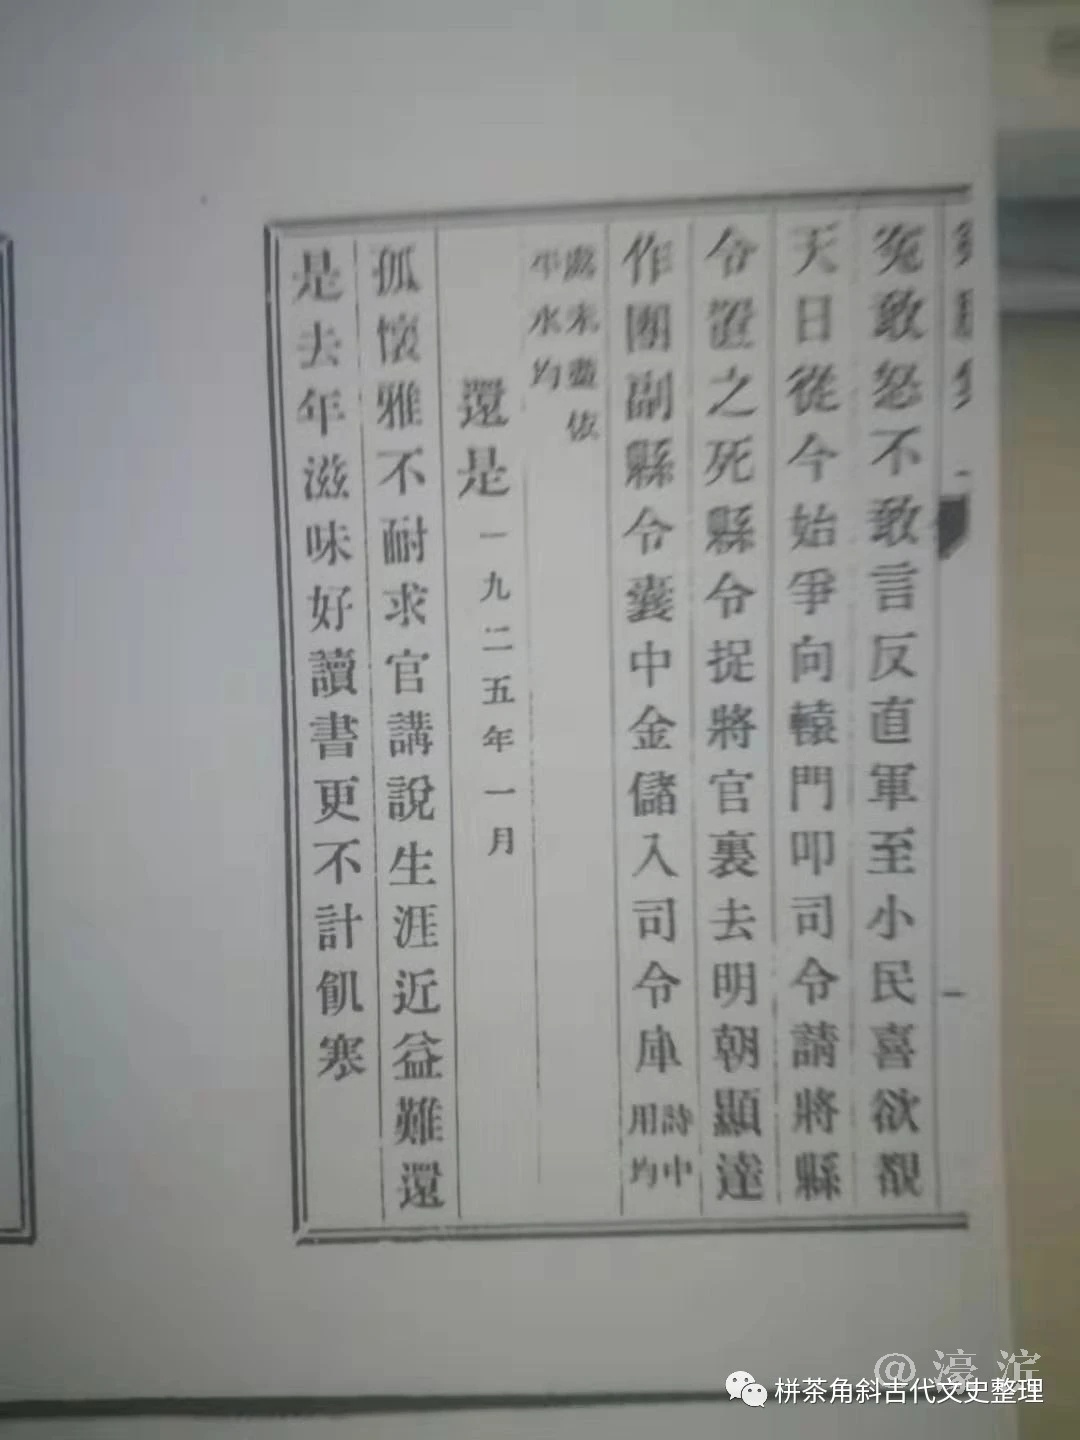 冤敢怒不敢言反直軍至小民喜欲覩
天日從今始爭向轅門叩司令請將縣
令置之死縣令捉將官裏去明朝顯達
作團副縣令囊中金儲入司令庫詩中用均
處未盡依平水均
還是一九二五年一月
孤懷雅不耐求官講說生涯近益難還
是去年滋味好讀書更不計飢寒
@濠滨
栟茶角斜古代文史整理